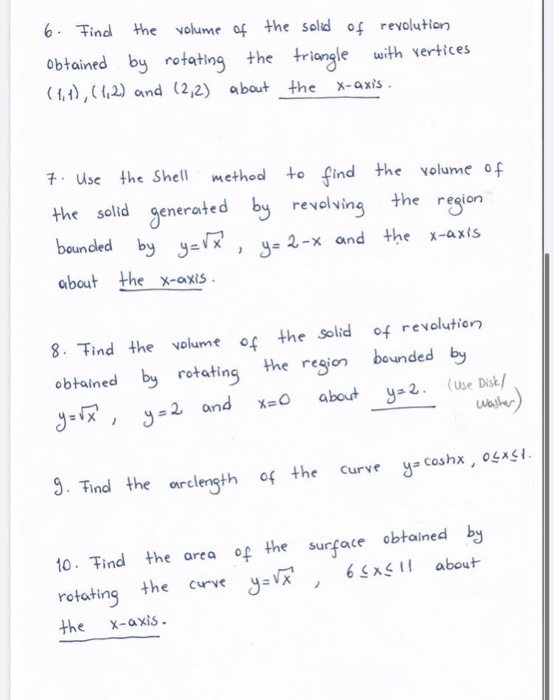 6. Find the volume of the solid of revolution
obtained by rotating the triangle with vertices
(1,1), (1,2) and (2,2) about the x-axis.
7. Use the Shell method to find the volume of
the solid generated by revolving the region
bounded by y=√x, y=2-x and the x-axis
about the x-axis.
8. Find the volume of the solid of revolution
obtained by rotating the region bounded by
y=√x, y=2 and x=0 about y=2. (Use Disk/
washer)
9. Find the arclength of the curve y=coshx, 0≤x≤1.
10. Find the area of the surface obtained by
rotating the curve y=√x, 6≤x≤11 about
the x-axis.